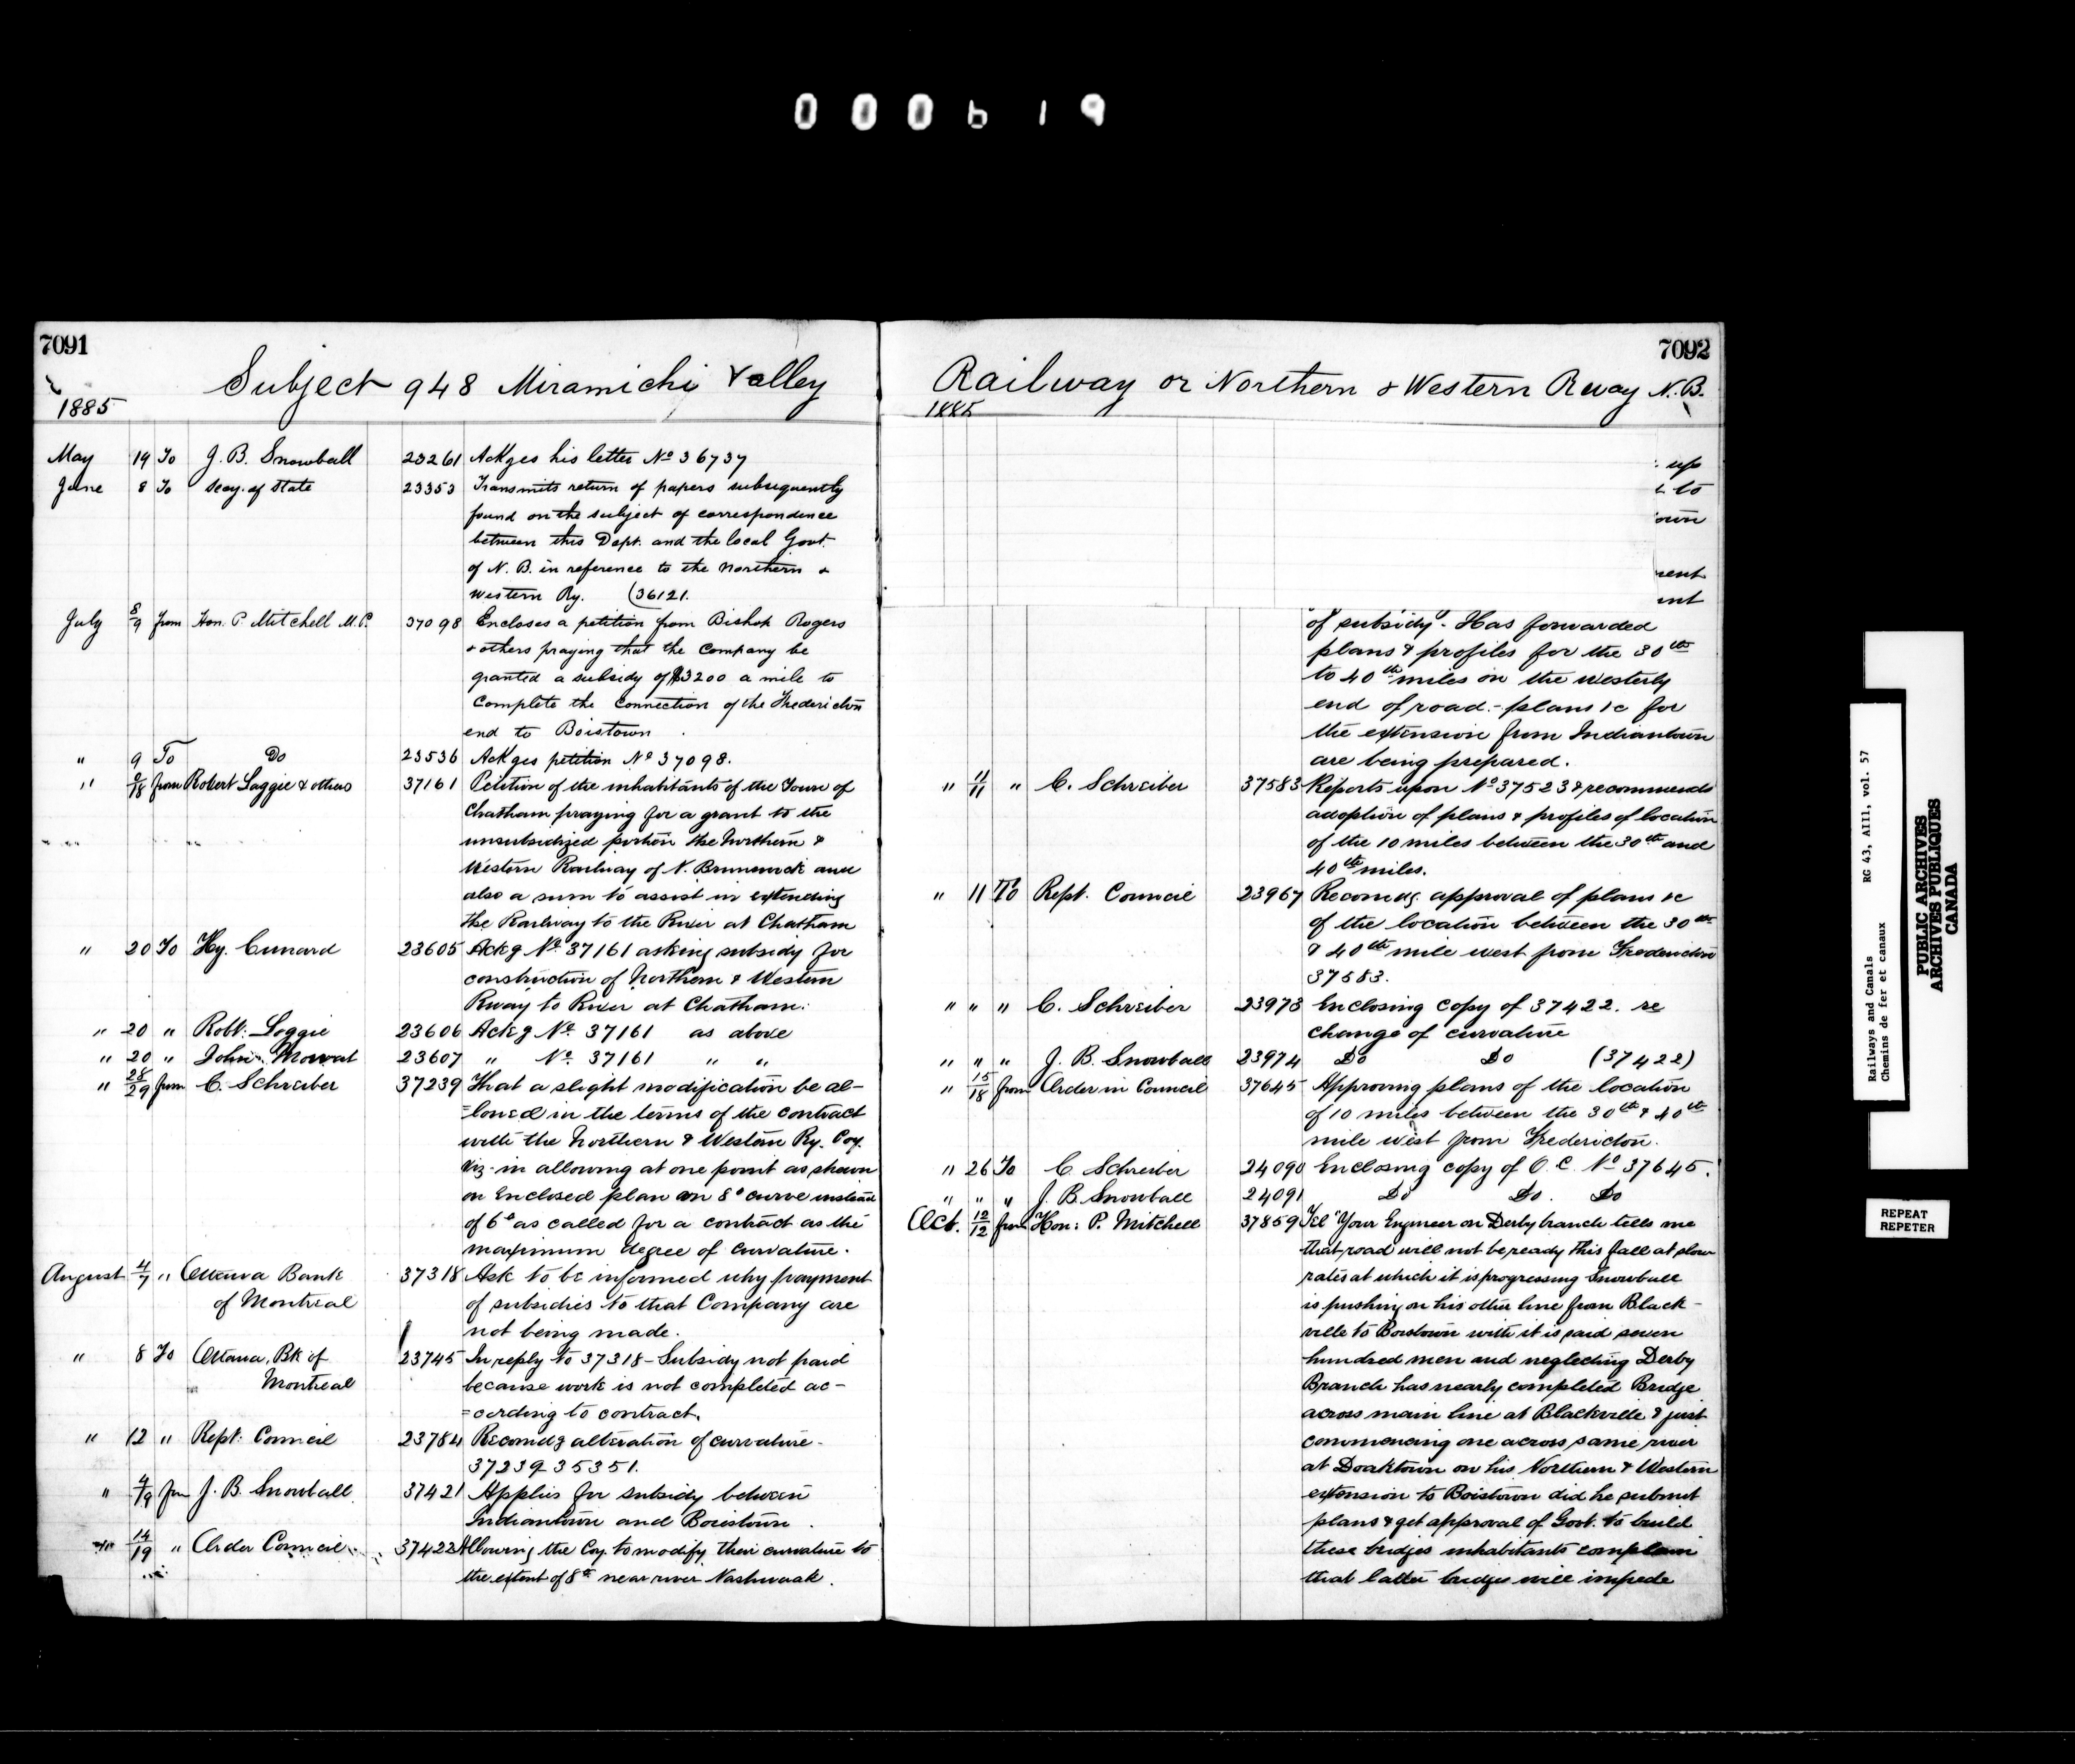 000619
7091
Subject 948 Miramichi Valley
1885
May 19 To J. B. Snowball 23261 Ackges his letter No 36737
June 8 To Secy. of State 23353 Transmits return of papers subsequently
found on the subject of correspondence
between this Dept. and the local Govt.
of N. B. in reference to the Northern &
Western Ry. (36121.
July 8/9 from Hon. P. Mitchell M.P. 37098 Encloses a petition from Bishop Rogers
& others praying that the Company be
granted a subsidy of $3200 a mile to
Complete the Connection of the Fredericton
end to Boistown
" 9 To Do 23536 Ackges petition No 37098.
" 9/18 from Robert Loggie & others 37161 Petition of the inhabitants of the Town of
Chatham praying for a grant to the
unsubsidized portion the Northern &
Western Railway of N. Brunswick and
also a sum to assist in extending
the Railway to the River at Chatham
" 20 To Hy. Cunard 23605 Ackg No 37161 asking subsidy for
construction of Northern & Western
Rway to River at Chatham.
" 20 " Robt. Loggie 23606 Ackg No. 37161 as above
" 20 " John Mowat 23607 " No. 37161 " "
" 28/29 from C. Schreiber 37239 That a slight modification be al-
=lowed in the terms of the contract
with the Northern & Western Ry. Coy.
Viz- in allowing at one point as shewn
on Enclosed plan an 8° curve instead
of 6° as called for a contract as the
maximum degree of curvature.
August 4/7 " Ottawa Bank 37318 Ask to be informed why payment
of Montreal of subsidies to that Company are
not being made.
" 8 To Ottawa, Bk of 23745 In reply to 37318 - Subsidy not paid
Montreal because work is not completed ac-
=cording to contract.
" 12 " Rept. Council 23784 Recomdg alteration of curvature.
37239 35351.
" 4/19 from J. B. Snowball 37421 Applies for subsidy between
Indiantown and Boiestown.
" 14/19 " Order Council 37422 Allowing the Coy. to modify their curvature to
the extent of 8th near river Nashwaak.
7092
Railway or Northern & Western Rway N.B.
1885
up
to
own
ment
ent
of subsidy". Has forwarded
plans & profiles for the 30th
to 40th miles on the westerly
end of road. - plans &c for
the extension from Indiantown
are being prepared.
" 11/11 " C. Schreiber 37583 Reports upon No 37523 & recommends
adoption of plans & profiles of location
of the 10 miles between the 30th and
40th miles.
" 11 To Rept. Council 23967 Recomdg. approval of plans &c
of the location between the 30th
& 40th mile west from Fredericton
37583.
" " " C. Schreiber 23973 Enclosing copy of 37422. re
change of curvature
" " " J. B. Snowball 23974 Do Do (37422)
" 15/18 from Order in Council 37645 Approving plans of the location
of 10 miles between the 30th & 40th
mile west from Fredericton.
" 26 To C. Schreiber 24090 Enclosing copy of O. C. No 37645.
" " " J. B. Snowball 24091 Do Do. Do
Oct. 12/12 from Hon: P. Mitchell 37859 Tel "Your Engineer on Derby branch tells me
that road will not be ready this fall at slow
rates at which it is progressing Snowball
is pushing on his other line from Black-
ville to Boistown with it is said seven
hundred men and neglecting Derby
Branch has nearly completed Bridge
across main line at Blackville & just
commencing one across same river
at Doaktown on his Northern & Western
extension to Boistown did he submit
plans & get approval of Govt. to build
these bridges inhabitants complain
that latter bridges will impede
Railways and Canals RG 43, AIII, vol. 57
Chemins de fer et canaux
PUBLIC ARCHIVES
ARCHIVES PUBLIQUES
CANADA
REPEAT
REPETER